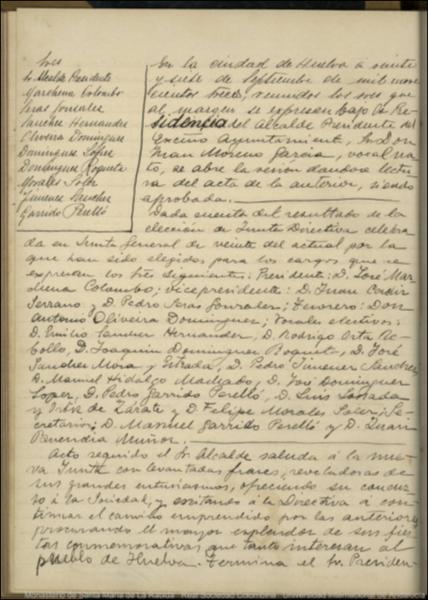 Sres
Sr. Alcalde Presidente
Marchena Colombo
Seras Gonzalez
Sanchez Hernandez
Oliveira Dominguez
Dominguez Lopez
Dominguez Roqueta
Morales Soler
Jimenez Sanchez
Garrido Perelló
En la ciudad de Huelva á veinte
y siete de Septiembre de mil nove
cientos trece, reunidos los sres que
al margen se expresan bajo la Pre-
sidencia del Alcalde Presidente del
Excmo Ayuntamiento, Sr. Don
Juan Moreno Garcia, vocal na-
to, se abre la sesion dandose lectu-
ra del acta de la anterior, siendo
aprobada.
Dada cuenta del resultado de la
elección de Junta Directiva celebra-
da en Junta General de veinte del actual por la
que han sido elegidos para los cargos que se
expresan los Sres siguientes: Presidente: D. José Mar-
chena Colombo; Vicepresidente: D. Juan Cadiz
Serrano y D. Pedro Seras Gonzalez; Tesorero: Don
Antonio Oliveira Dominguez; Vocales electivos:
D. Emilio Sanchez Hernandez, D. Rodrigo Orta Re-
bollo, D. Joaquin Dominguez Roqueta, D. José
Sanchez Mora y Estrada, D. Pedro Jimenez Sanchez
D. Manuel Hidalgo Machado, D. José Dominguez
Lopez, D. Pedro Garrido Perelló, D. Luis Lossada
y Ortiz de Zárate y D. Felipe Morales Soler; Se-
cretarios: D. Manuel Garrido Perelló y D. Juan
Buendia Muñoz.
Acto seguido el Sr. Alcalde saluda á la nue-
va Junta con levantadas frases, reveladoras de
sus grandes entusiasmos, ofreciendo su concur-
so á la Sociedad, y excitando á la Directiva á con-
tinuar el camino emprendido por las anteriores
procurando el mayor explendor de sus fies-
tas conmemorativas que tanto interesan al
pueblo de Huelva. Termina el Sr. Presiden-